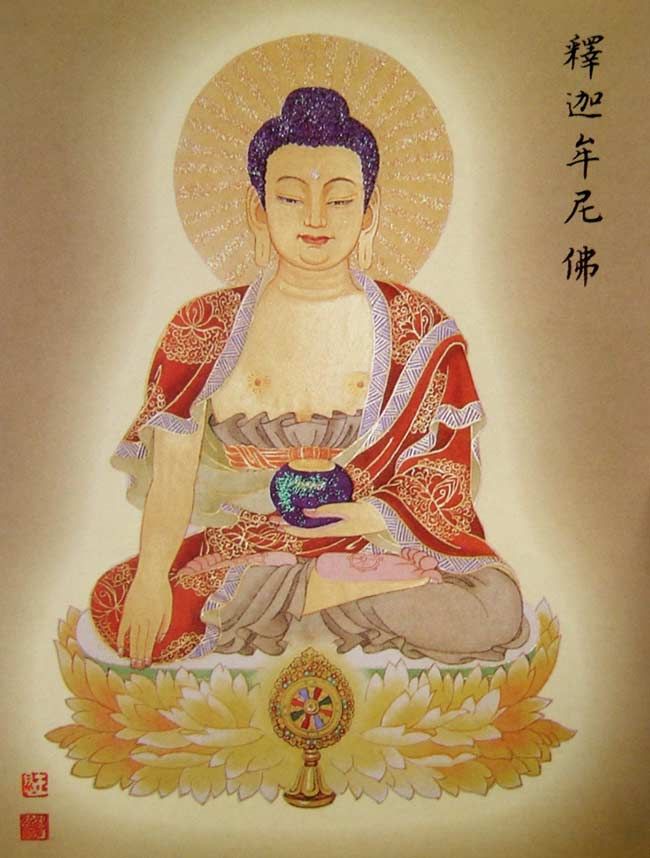 釋迦牟尼佛